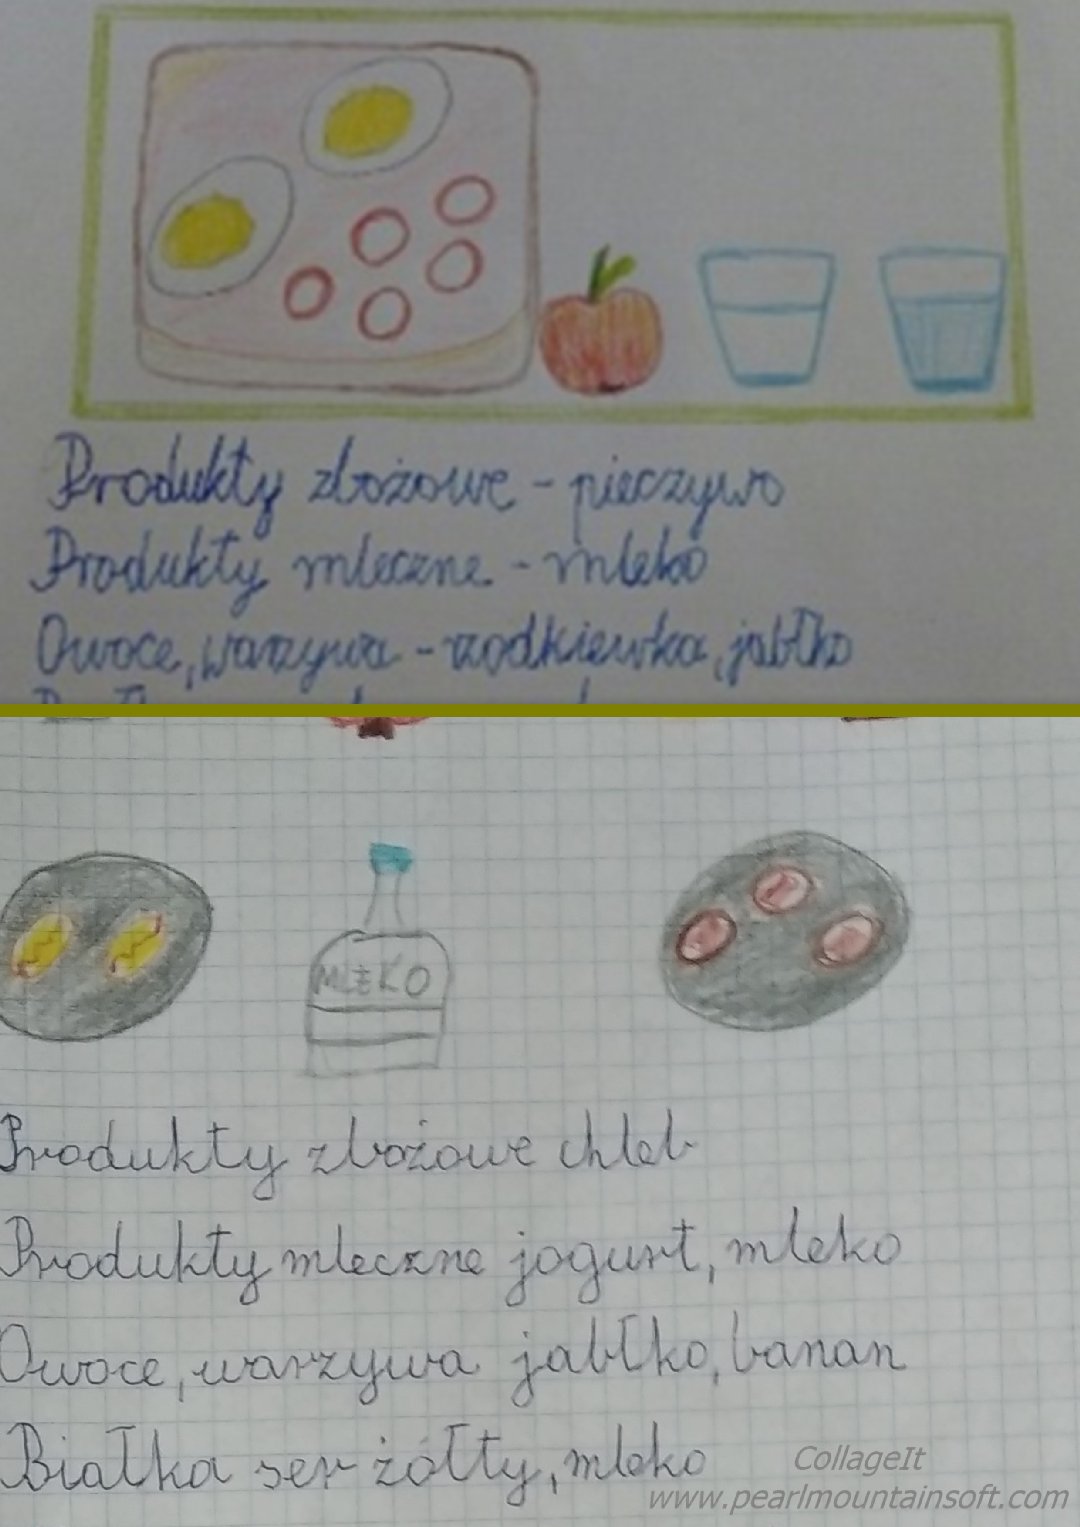 Produkty zbożowe - pieczywo
Produkty mleczne - mleko
Owoce, warzywa - rzodkiewka, jabłko
MLEKO
Produkty zbożowe chleb
Produkty mleczne jogurt, mleko
Owoce, warzywa jabłko, banan
Białka ser żółty, mleko
CollageIt
www.pearlmountainsoft.com